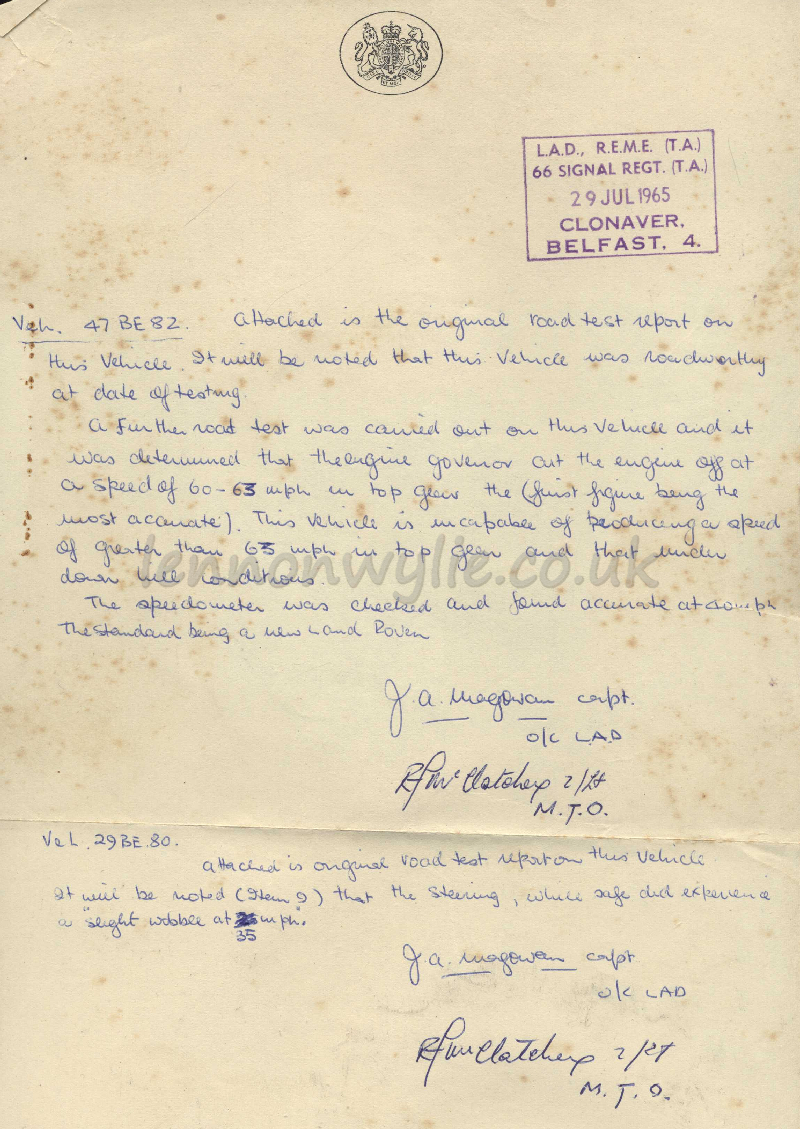 L.A.D., R.E.M.E. (T.A.)
66 SIGNAL REGT. (T.A.)
29 JUL 1965
CLONAVER.
BELFAST. 4.
Veh. 47 BE 82. Attached is the original road test report on
this Vehicle. It will be noted that this Vehicle was roadworthy
at date of testing.
A further road test was carried out on this Vehicle and it
was determined that the engine governor cut the engine off at
a speed of 60-63 mph in top gear the (first figure being the
most accurate). This Vehicle is incapable of producing a speed
of greater than 63 mph in top gear and that under
down hill conditions.
lennonwylie.co.uk
The speedometer was checked and found accurate at mph
The standard being a new Land Rover
J. A. Magowan capt.
o/c L.A.D
R F Mc Clatchey 2/Lt
M.T.O.
Veh. 29 BE. 80.
Attached is original road test report on this Vehicle
It will be noted (Item 9) that the steering, while safe did experience
a "slight wobble at mph".
35
J. A. Magowan capt
o/c LAD
R F Mc Clatchey 2/Lt
M.T.O.